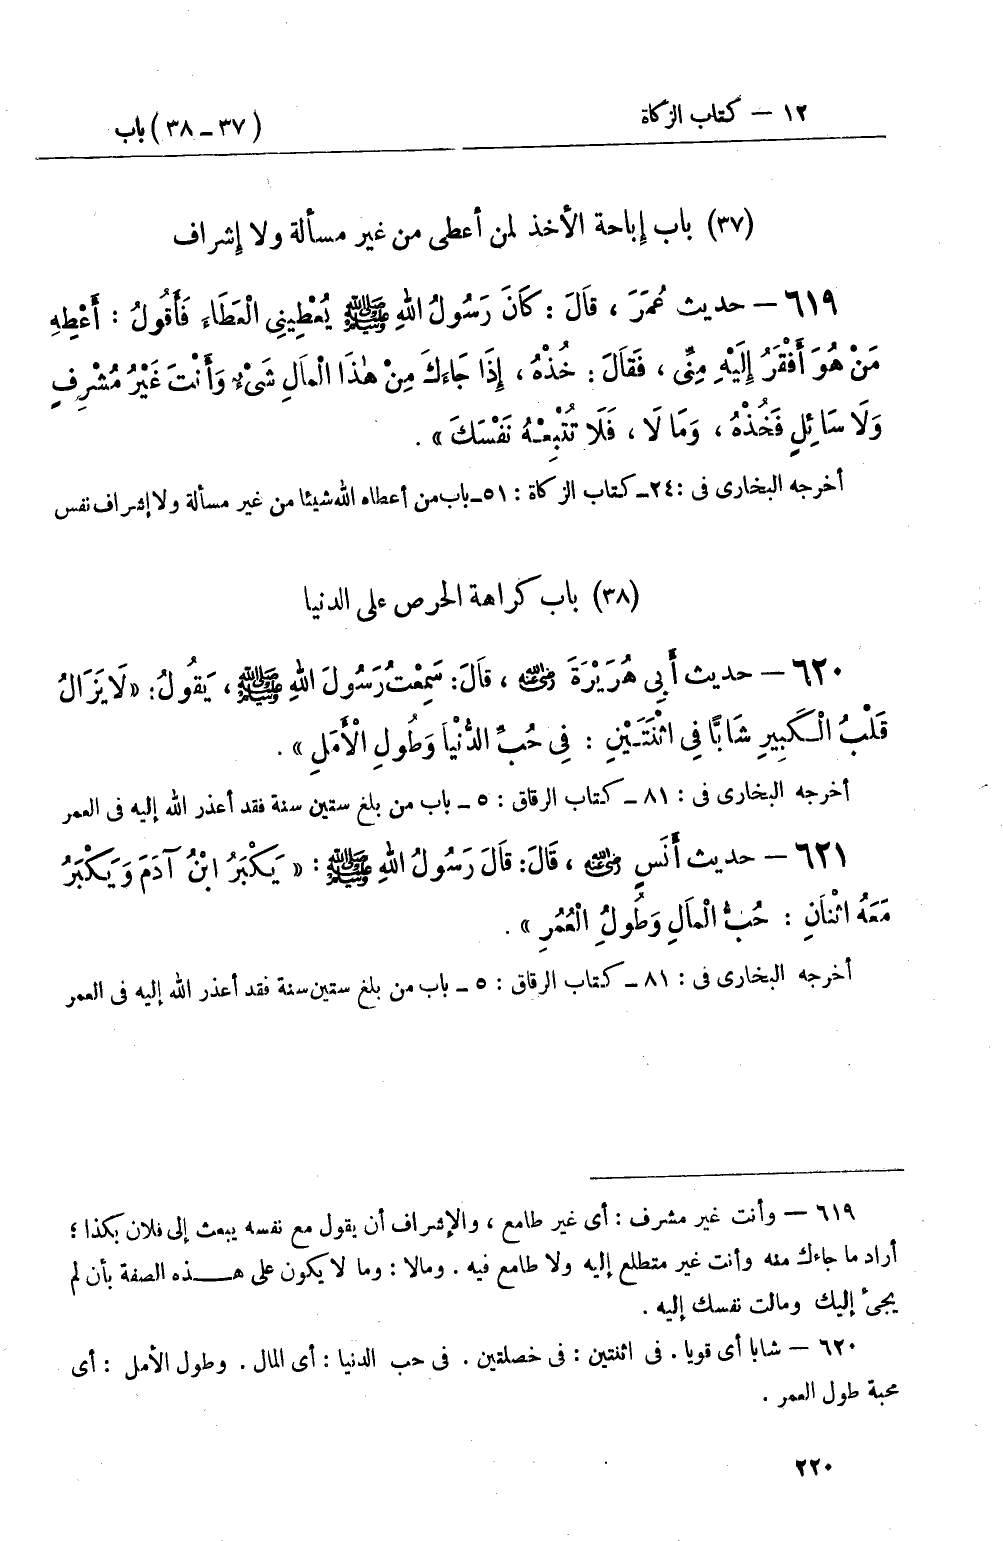 ١٢ — كتاب الزكاة
(٣٧ – ٣٨) باب
(٣٧) باب إباحة الأخذ لمن أعطى من غير مسألة ولا إشراف
٦١٩ — حديث عُمَرَ ، قَالَ : كَانَ رَسُولُ اللهِ ﷺ يُعْطِينِى الْعَطَاءَ فَأَقُولُ : أَعْطِهِ
مَنْ هُوَ أَفْقَرُ إِلَيْهِ مِنِّى ، فَقَالَ : خُذْهُ ، إِذَا جَاءَكَ مِنْ هٰذَا الْمَالِ شَىْءٌ وَأَنْتَ غَيْرُ مُشْرِفٍ
وَلَا سَائِلٍ فَخُذْهُ ، وَمَا لَا ، فَلَا تُتْبِعْهُ نَفْسَكَ » .
أخرجه البخارى فى : ٢٤ـ كتاب الزكاة : ٥١ـ باب من أعطاه الله شيئا من غير مسألة ولا إشراف نفس
(٣٨) باب كراهة الحرص على الدنيا
٦٢٠ — حديث أَبِى هُرَيْرَةَ رضي الله عنه ، قَالَ : سَمِعْتُ رَسُولَ اللهِ ﷺ ، يَقُولُ : « لَا يَزَالُ
قَلْبُ الْكَبِيرِ شَابًّا فِى اثْنَتَيْنِ : فِى حُبِّ الدُّنْيَا وَطُولِ الْأَمَلِ » .
أخرجه البخارى فى : ٨١ ـ كتاب الرقاق : ٥ ـ باب من بلغ ستين سنة فقد أعذر الله إليه فى العمر
٦٢١ — حديث أَنَسٍ رضي الله عنه ، قَالَ : قَالَ رَسُولُ اللهِ ﷺ : « يَكْبَرُ ابْنُ آدَمَ وَيَكْبَرُ
مَعَهُ اثْنَانِ : حُبُّ الْمَالِ وَطُولُ الْعُمُرِ » .
أخرجه البخارى فى : ٨١ ـ كتاب الرقاق : ٥ ـ باب من بلغ ستين سنة فقد أعذر الله إليه فى العمر
٦١٩ — وأنت غير مشرف : أى غير طامع ، والإشراف أن يقول مع نفسه يبعث إلى فلان بكذا ؛
أراد ما جاءك منه وأنت غير متطلع إليه ولا طامع فيه . ومالا : وما لا يكون على هـــذه الصفة بأن لم
يجىء إليك ومالت نفسك إليه .
٦٢٠ — شابا أى قويا . فى اثنتين : فى خصلتين . فى حب الدنيا : أى المال . وطول الأمل : أى
محبة طول العمر .
٢٢٠